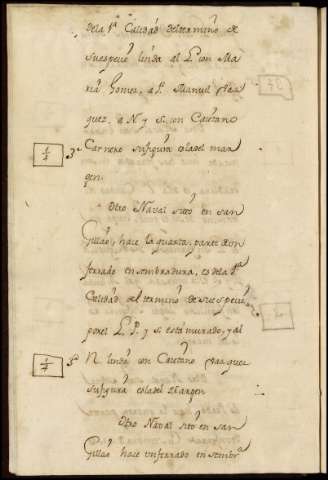 dela 1ª Calidad deltermino de
su especie linda al L. con Ma
ria Gomez, a P. Manuel Vaz
quez, a N. y s. con Caetano
1/4 3º Carrero su figura ela del mar
gen.
Otro Naval sito en san
Gillao, hace la quarta parte de un
ferrado en sembradura, es dela 1ª
Calidad del termino de su especie
por el L. P. y s. está murado, y al
1/4 3º N. linda con Caetano Vazquez
su figura ela del Margen
Otro Naval sito en san
Gillao hace un ferrado en sembr